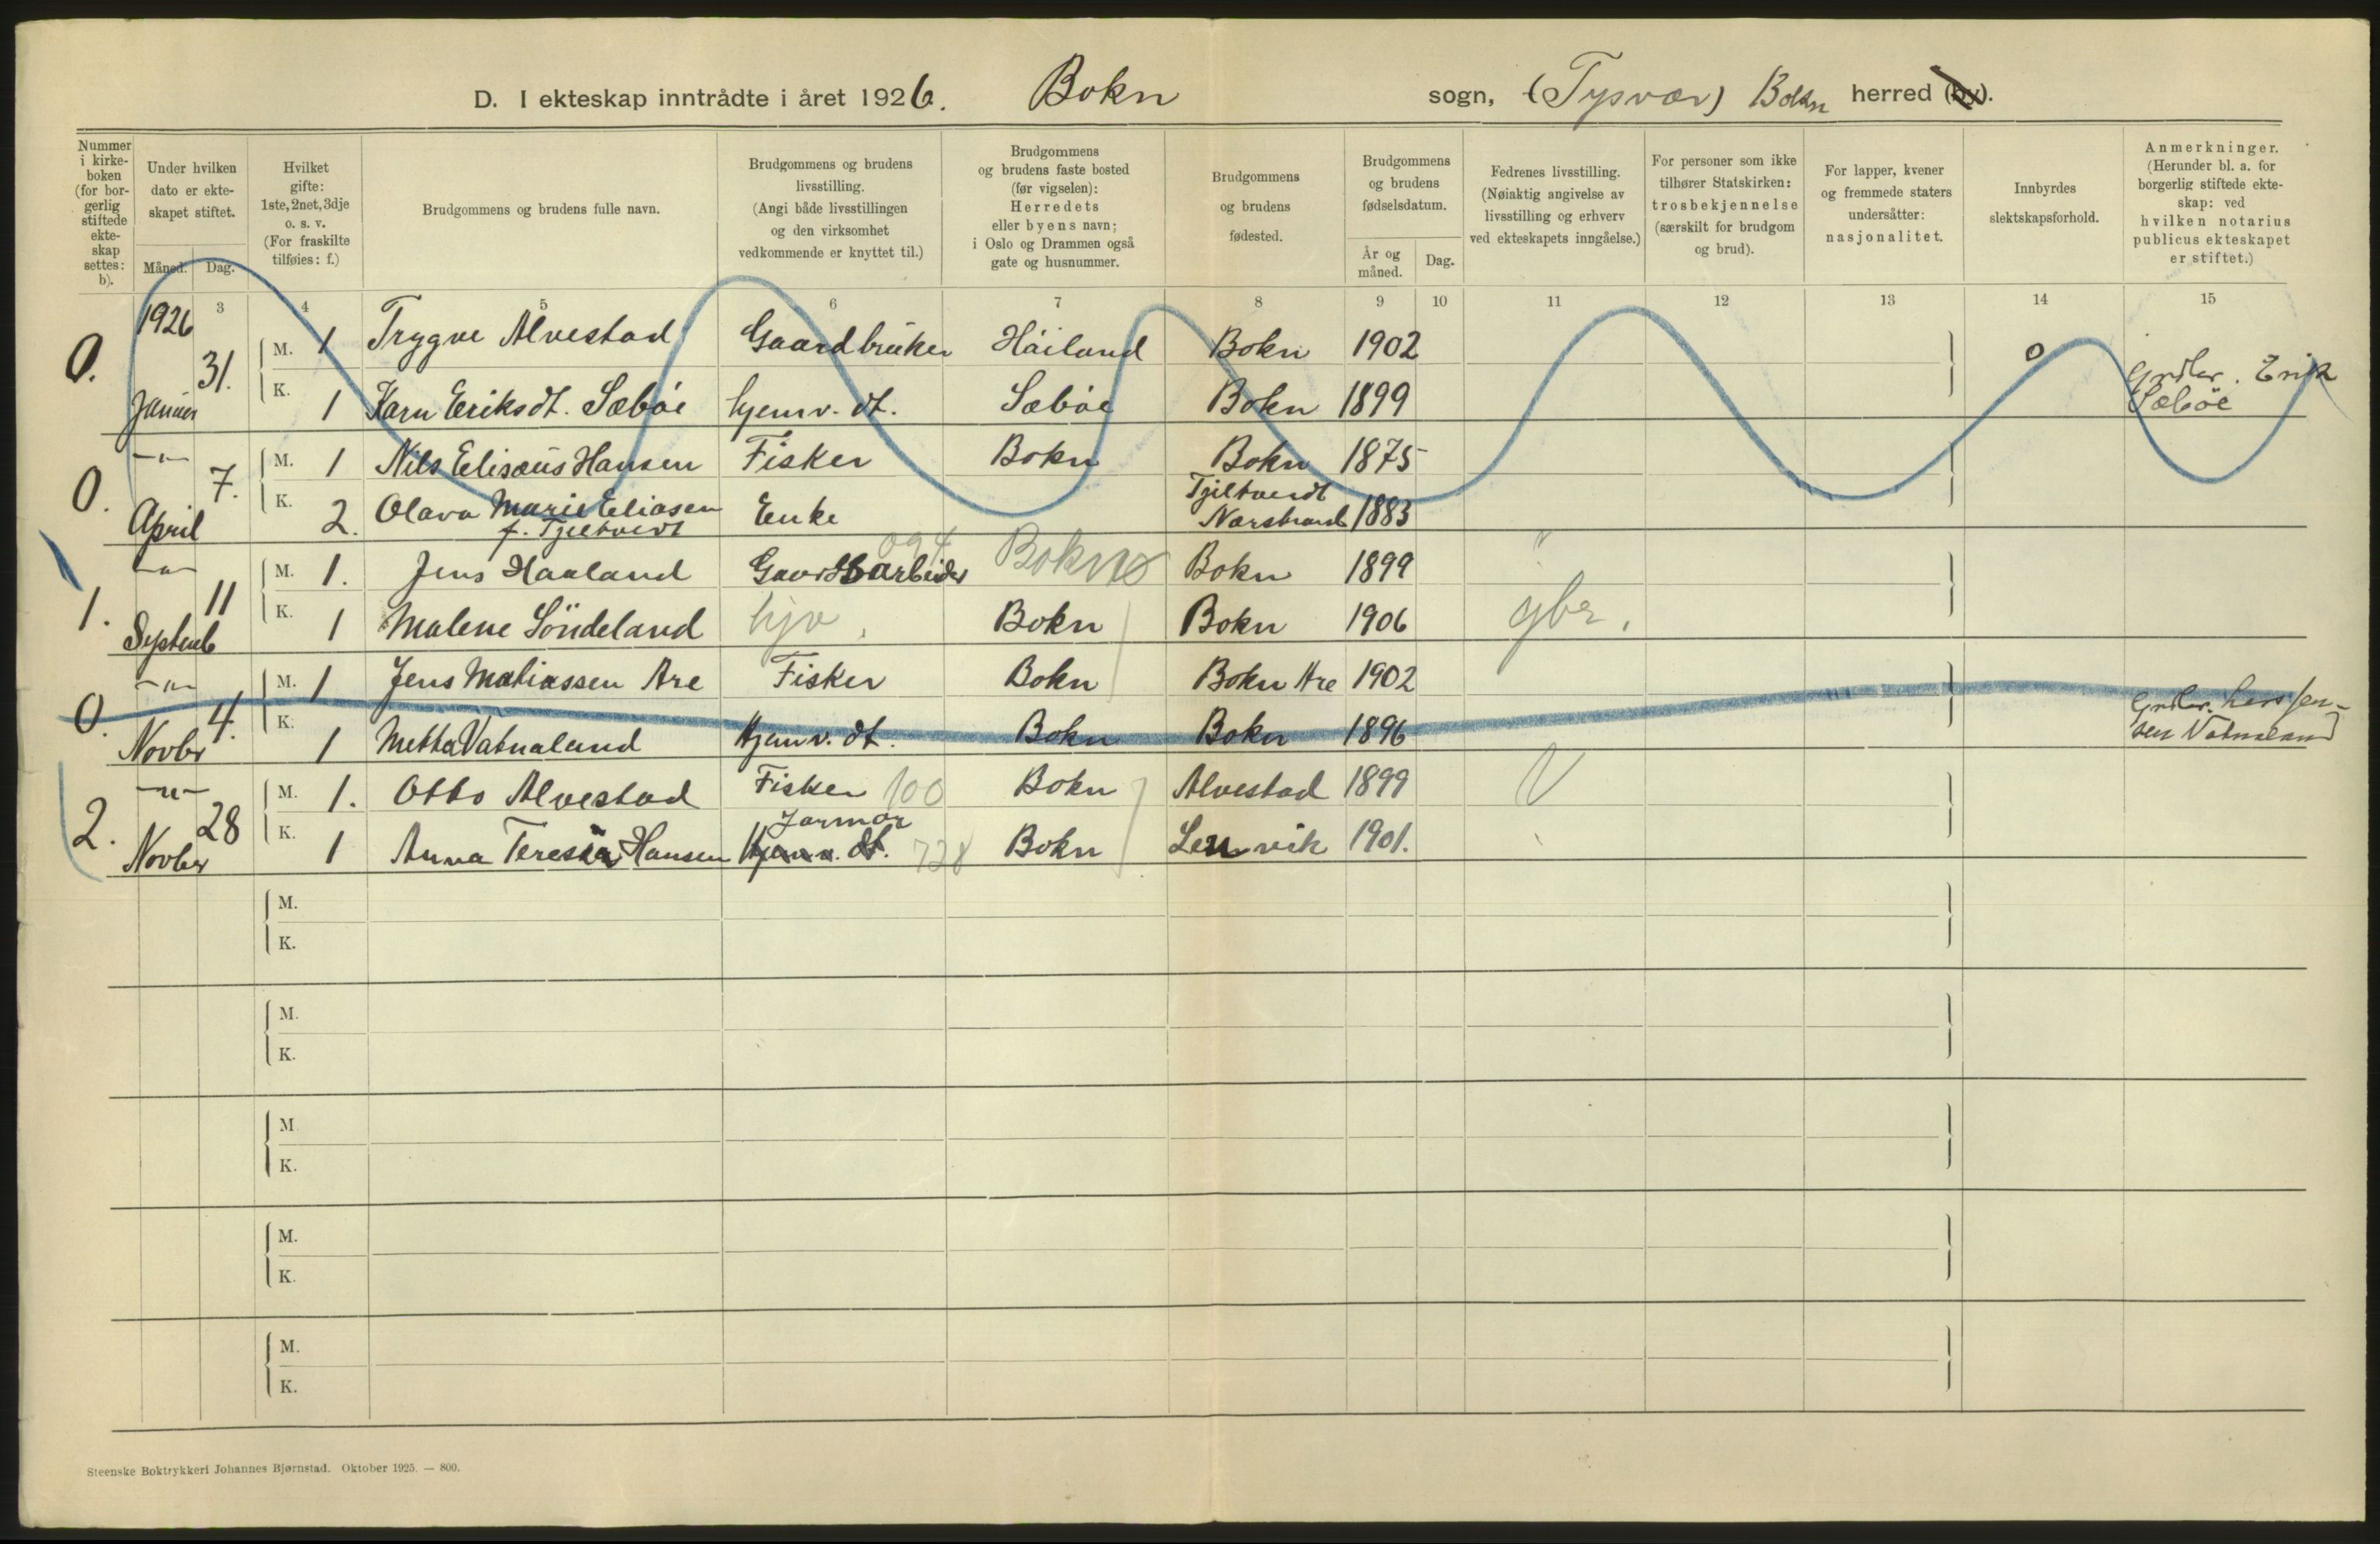 D. I ekteskap inntrådte i året 1926. Bokn sogn, (Tysvær) Bokn herred (by).
Nummer i kirkeboken (for borgerlig stiftede ekteskap settes: b).
Under hvilken dato er ekteskapet stiftet.
Måned. Dag.
Hvilket gifte: 1ste, 2net, 3dje o. s. v. (For fraskilte tilføies: f.)
Brudgommens og brudens fulle navn.
Brudgommens og brudens livsstilling. (Angi både livsstillingen og den virksomhet vedkommende er knyttet til.)
Brudgommens og brudens faste bosted (før vigselen): Herredets eller byens navn; i Oslo og Drammen også gate og husnummer.
Brudgommens og brudens fødested.
Brudgommens og brudens fødselsdatum.
År og måned. Dag.
Fedrenes livsstilling. (Nøiaktig angivelse av livsstilling og erhverv ved ekteskapets inngåelse.)
For personer som ikke tilhører Statskirken: trosbekjennelse (særskilt for brudgom og brud).
For lapper, kvener og fremmede staters undersåtter: nasjonalitet.
Innbyrdes slektskapsforhold.
Anmerkninger. (Herunder bl. a. for borgerlig stiftede ekteskap: ved hvilken notarius publicus ekteskapet er stiftet.)
3 4 5 6 7 8 9 10 11 12 13 14 15
1926
0. 31. M. 1 Trygve Alvestad Gaardbruker Håiland Bokn 1902 0
Januar K. 1 Karn Eriksdt. Sæbøe hjemv. dt. Sæbøe Bokn 1899 Grdbr. Erik Sæbøe
0. 7. M. 1 Nils Elisæus Hansen Fisker Bokn Bokn 1875
April K. 2. Olava Marie Eliasen f. Tjeltveidt Enke Tjeltveidt Nærstrand 1883
1. 11 M. 1. Jens Haaland Gaardsarbeider 094 Bokn Bokn 1899
Septemb K. 1 Malene Söndeland hjv. Bokn Bokn 1906 gbr.
0. 4. M. 1 Jens Matiassen Are Fisker Bokn Bokn Are 1902
Novbr K. 1 Metta Vatnaland Hjemv. dt. Bokn Bokn 1896 Grdbr. Lars Jensen Vatnaland
2. 28 M. 1. Otto Alvestad Fisker 100 Bokn Alvestad 1899
Novber K. 1 Anna Teresia Hansen Hjemv. dt. Jormor 728 Bokn Lenvik 1901.
M.
K.
M.
K.
M
K.
M.
K.
M.
K.
Steenske Boktrykkeri Johannes Bjørnstad. Oktober 1925. — 800.